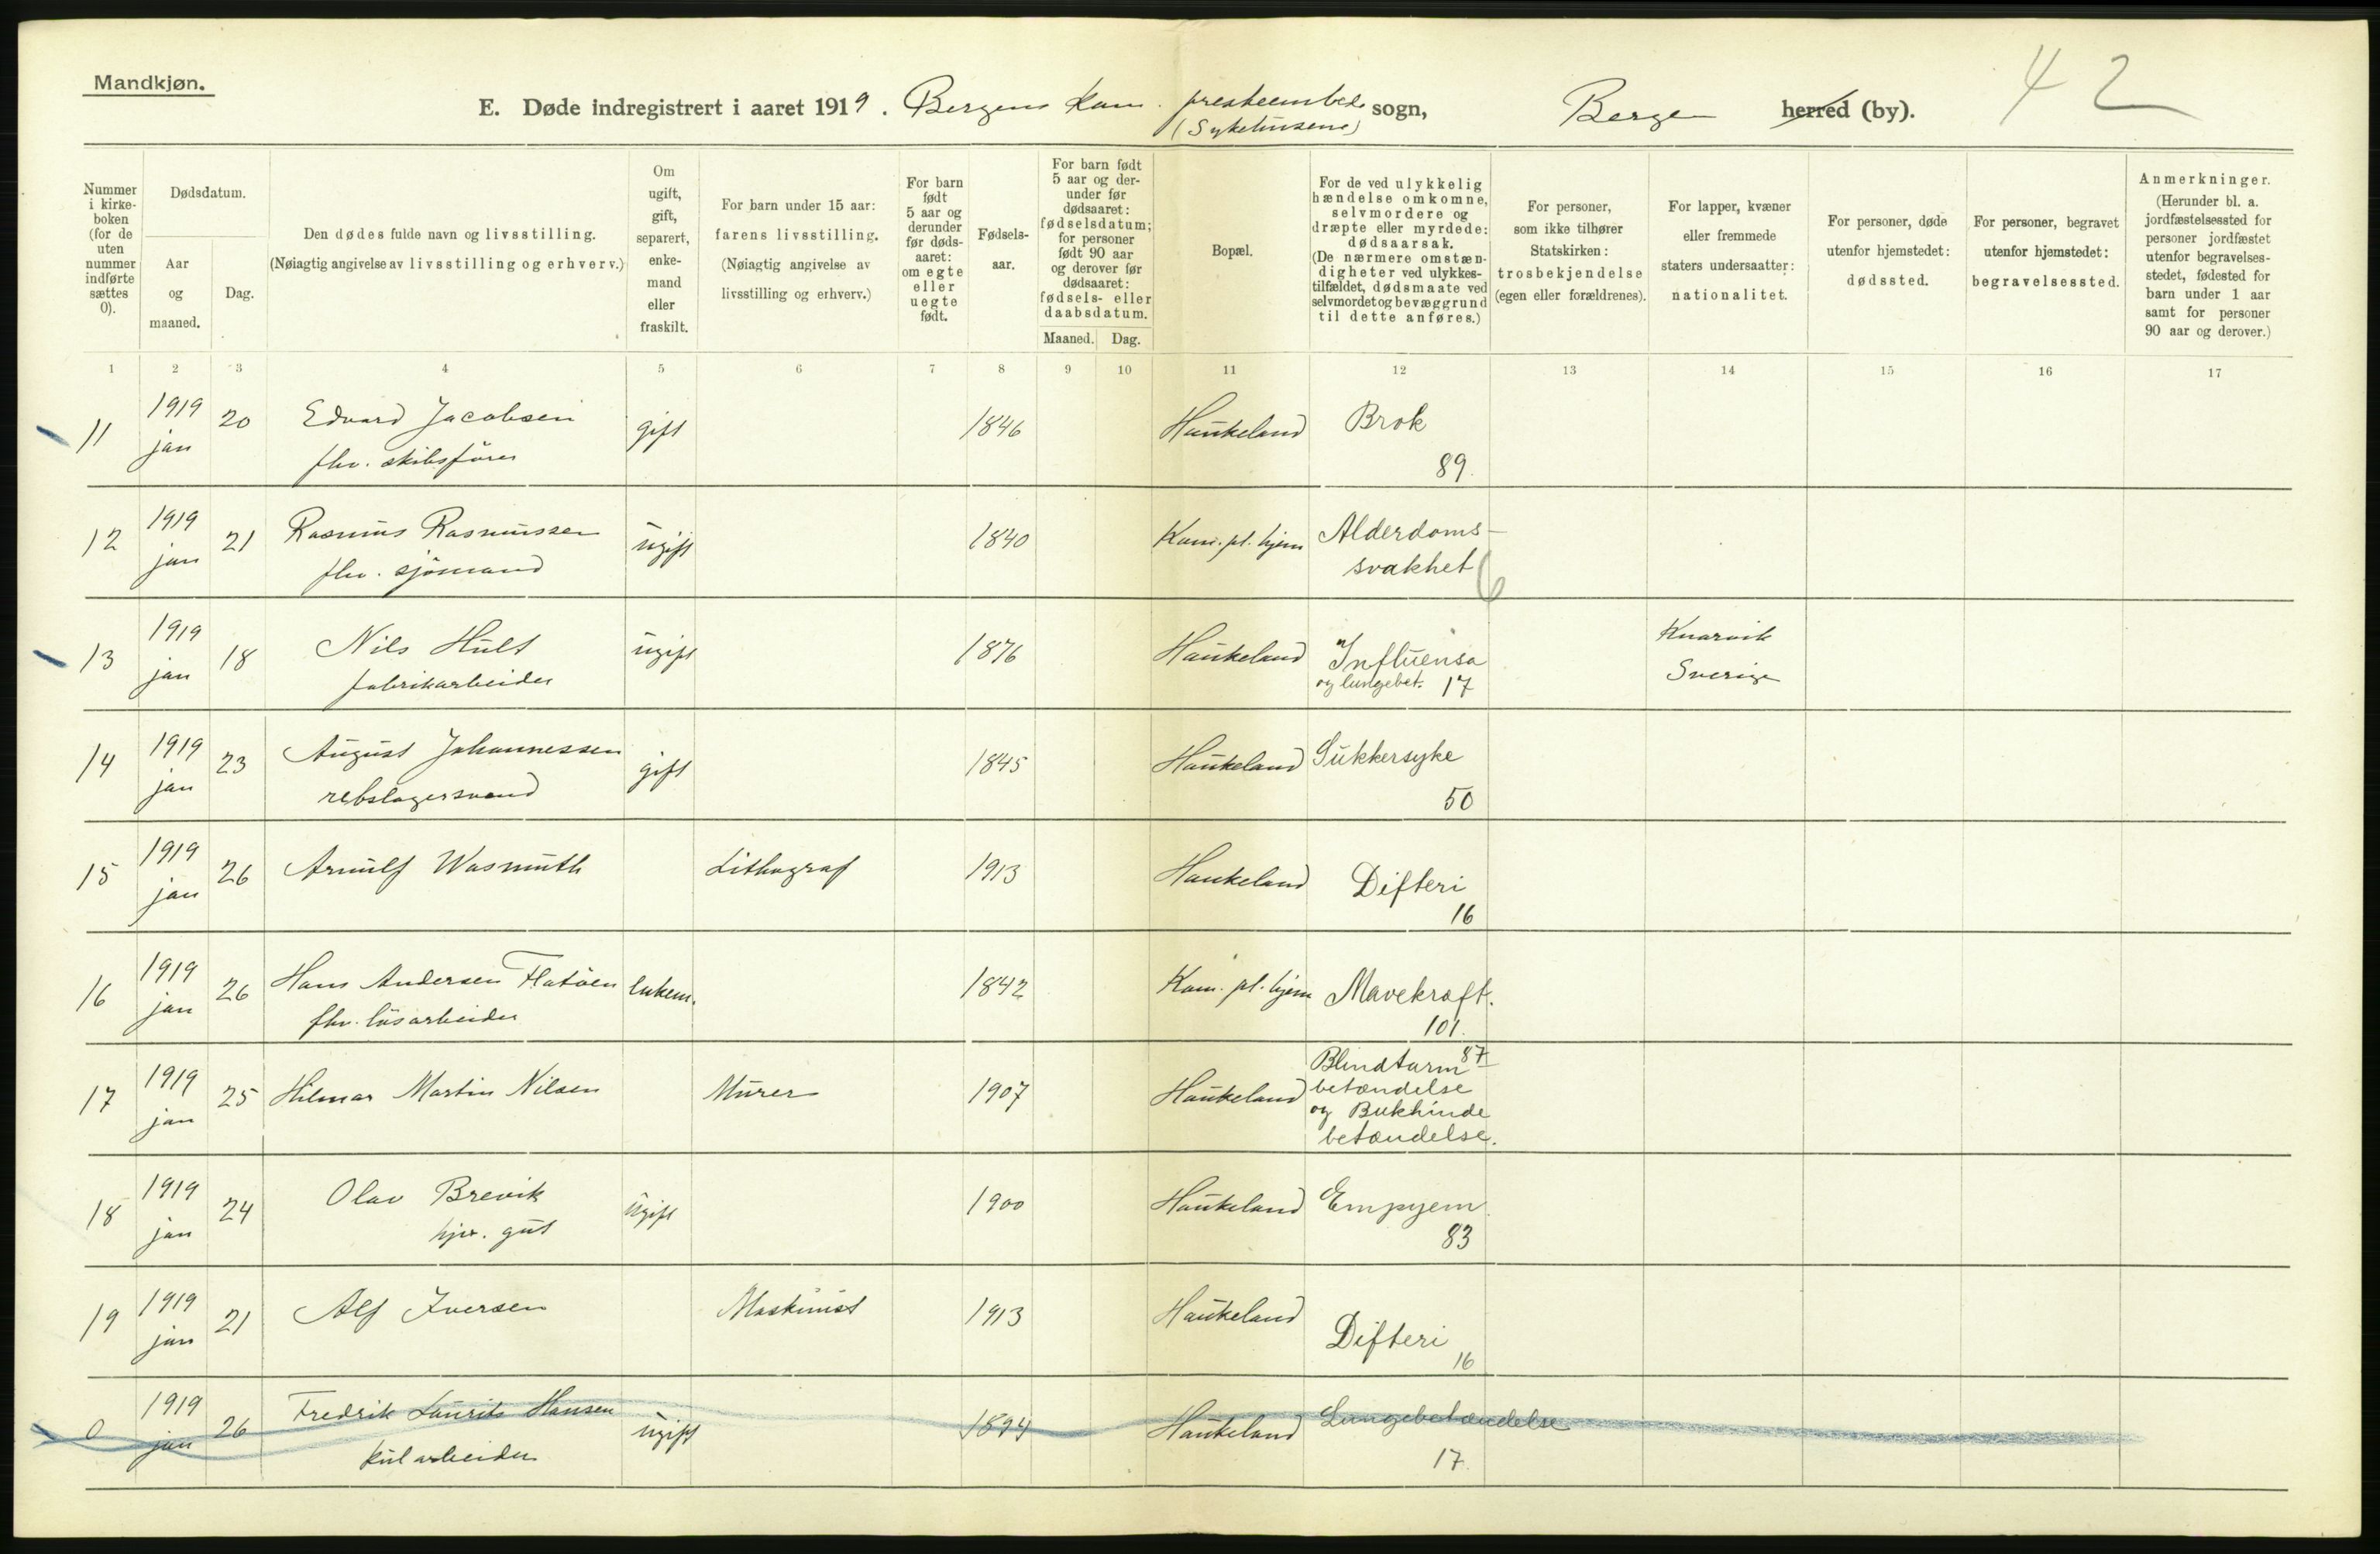 Mandkjøn.
42
E. Døde indregistrert i aaret 1919. Bergens Kom. presteembede sogn, Bergen herred (by).
(Sykehusene)
Nummer i kirkeboken (for de uten nummer indførte sættes 0).
Dødsdatum.
Aar og maaned.
Dag.
Den dødes fulde navn og livsstilling.
(Nøiagtig angivelse av livsstilling og erhverv.)
Om ugift, gift, separert, enkemand eller fraskilt.
For barn under 15 aar: farens livsstilling. (Nøiagtig angivelse av livsstilling og erhverv.)
For barn født 5 aar og derunder før dødsaaret: om egte eller uegte født.
Fødselsaar.
For barn født 5 aar og derunder før dødsaaret: fødselsdatum; for personer født 90 aar og derover før dødsaaret: fødsels- eller daabsdatum.
Maaned. Dag.
Bopæl.
For de ved ulykkelig hændelse omkomne, selvmordere og dræpte eller myrdede: dødsaarsak. (De nærmere omstændigheter ved ulykkestilfældet, dødsmaate ved selvmordet og bevæggrund til dette anføres.)
For personer, som ikke tilhører Statskirken: trosbekjendelse (egen eller forældrenes).
For lapper, kvæner eller fremmede staters undersaatter: nationalitet.
For personer, døde utenfor hjemstedet: dødssted.
For personer, begravet utenfor hjemstedet: begravelsessted.
Anmerkninger. (Herunder bl. a. jordfæstelsessted for personer jordfæstet utenfor begravelsesstedet, fødested for barn under 1 aar samt for personer 90 aar og derover.)
1 2 3 4 5 6 7 8 9 10 11 12 13 14 15 16 17
11 1919 jan 20 Edvard Jacobsen gift 1846 Haukeland Brok
fhv. skibsfører 89.
12 1919 jan 21 Rasmus Rasmussen ugift 1840 Kom. pl. hjem Alderdoms-
fhv. sjömand svakhet 6
13 1919 jan 18 Nils Hult ugift 1876 Haukeland Influensa Knarvik
fabrikarbeider og lungebet. 17 Sverige
14 1919 jan 23 August Johannessen gift 1845 Haukeland Sukkersyke
rebslagersvend 50
15 1919 jan 26 Arnulf Wasmuth Lithograf 1913 Haukeland Difteri
16
16 1919 jan 26 Hans Andersen Flatöen enkem. 1842 Kom. pl. hjem Mavekræft.
fhv. lösarbeider 101.
17 1919 jan 25 Hilmar Martin Nilsen Murer 1907 Haukeland Blindtarm 87
betændelse
og Bukhinde
betændelse.
18 1919 jan 24 Olav Brevik ugift 1900 Haukeland Empyem
hjx. gut 83
19 1919 jan 21 Alf Iversen Maskinist 1913 Haukeland Difteri
16
0 1919 jan 26 Fredrik Laurits Hansen ugift 1894 Haukeland Lungebetændelse
kularbeider 17.